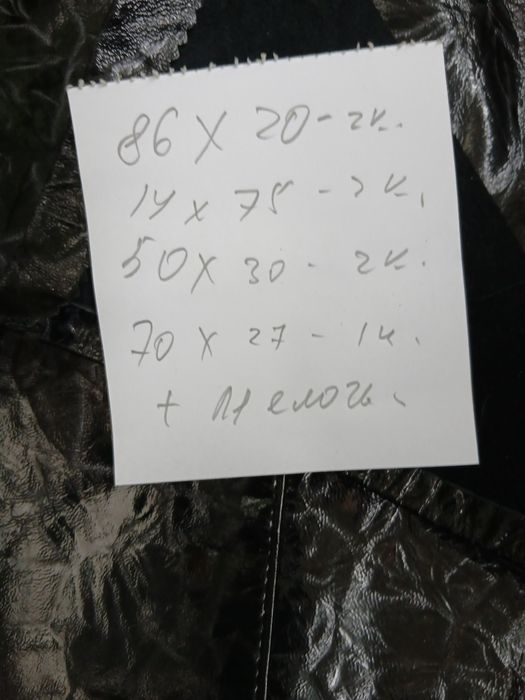 86 x 20 - 2к.
14 x 75 - 2к.
50 x 30 - 2к.
70 x 27 - 1к.
+ мелочь